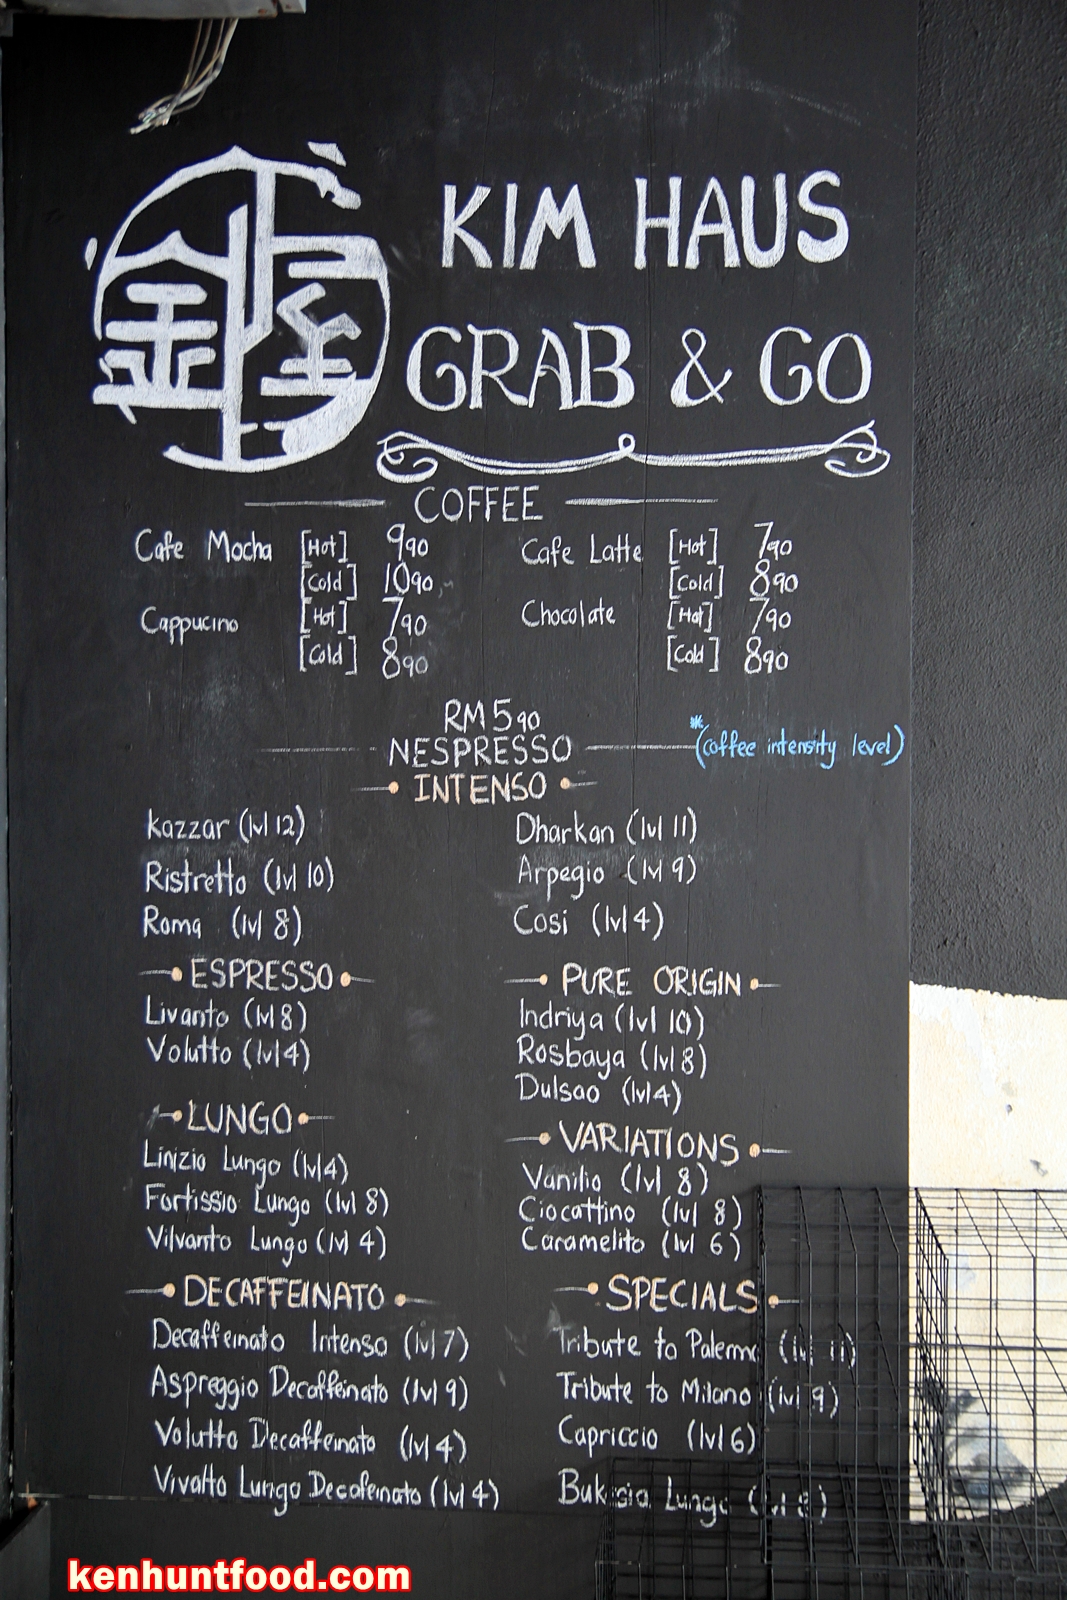 金
KIM HAUS
GRAB & GO
COFFEE
Cafe Mocha [Hot] 990
[Cold] 1090
Cappucino [Hot] 790
[Cold] 890
Cafe Latte [Hot] 790
[Cold] 890
Chocolate [Hot] 790
[Cold] 890
RM 590
NESPRESSO
*(coffee intensity level)
INTENSO
Kazzar (lvl 12)
Ristretto (lvl 10)
Roma (lvl 8)
Dharkan (lvl 11)
Arpegio (lvl 9)
Cosi (lvl 4)
ESPRESSO
Livanto (lvl 8)
Volutto (lvl 4)
PURE ORIGIN
Indriya (lvl 10)
Rosbaya (lvl 8)
Dulsao (lvl 4)
LUNGO
Linizio Lungo (lvl 4)
Fortissio Lungo (lvl 8)
Vilvanto Lungo (lvl 4)
VARIATIONS
Vanilio (lvl 8)
Ciocattino (lvl 8)
Caramelito (lvl 6)
DECAFFEINATO
Decaffeinato Intenso (lvl 7)
Aspreggio Decaffeinato (lvl 9)
Volutto Decaffeinato (lvl 4)
Vivalto Lungo Decafeinato (lvl 4)
SPECIALS
Tribute to Palermo (lvl 11)
Tribute to Milano (lvl 9)
Capriccio (lvl 6)
Bukesia Lungo (lvl 8)
kenhuntfood.com